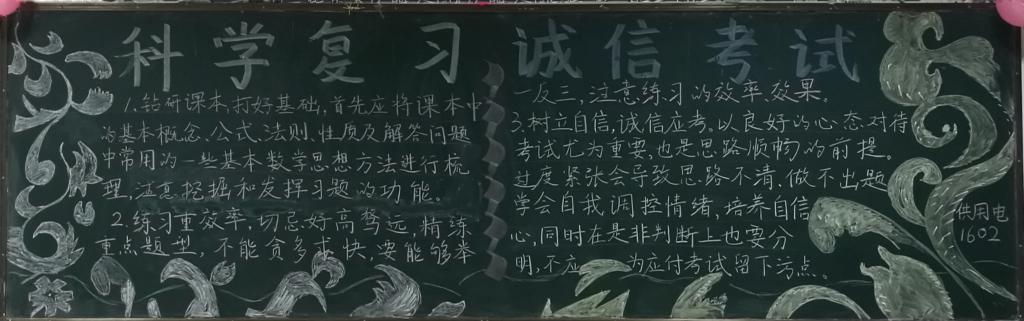 科学复习 诚信考试
1.钻研课本,打好基础,首先应将课本中
的基本概念、公式、法则、性质及解答问题
中常用的一些基本数学思想方法进行梳
理,注意挖掘和发挥习题的功能。
2.练习重效率,切忌好高骛远,精练
重点题型,不能贪多求快,要能够举
一反三,注意练习的效率、效果。
3.树立自信,诚信应考。以良好的心态对待
考试尤为重要,也是思路顺畅的前提。
过度紧张会导致思路不清、做不出题
学会自我调控情绪,培养自信
心,同时在是非判断上也要分
明,不应 为应付考试留下污点。
供用电
1602